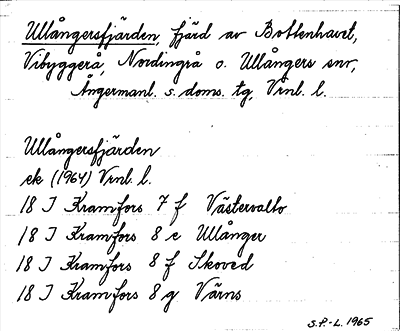 Ullångersfjärden, fjärd av Bottenhavet,
Vibyggerå, Nordingrå o. Ullångers snr,
Ångermanl. s. doms. tg, Vnl. l.
Ullångersfjärden
ek (1964) Vnl. l.
18 J Kramfors 7 f Västervalto
18 J Kramfors 8 e Ullånger
18 J Kramfors 8 f Skoved
18 J Kramfors 8 g Värns
S.P.-L. 1965